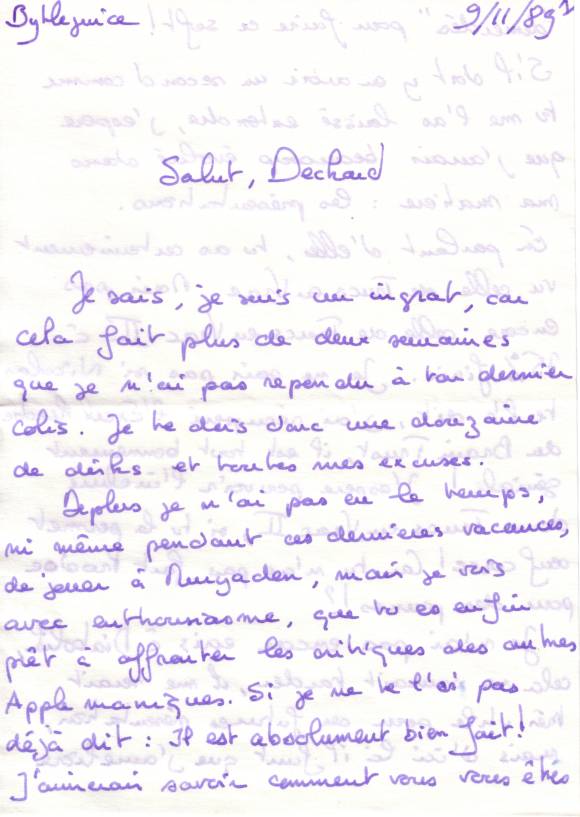 Byteznice 9/11/89
Salut, Dechaud
Je sais, je suis un ingrat, car
cela fait plus de deux semaines
que je n'ai pas rependu à ton dernier
colis. Je te dois donc une dozaine
de disks et toutes mes excuses.
Deplus je n'ai pas eu le temps,
ni même pendant ces dernieres vacances,
de jouer à Nuryaden, mais je vois
avec enthousiasme, que tu es enfin
prêt à affronter les critiques des autres
Apple maniques. Si je ne te l'ai pas
déjà dit : Il est absolument bien fait!
J'aimerais savoir comment vous vous êtes